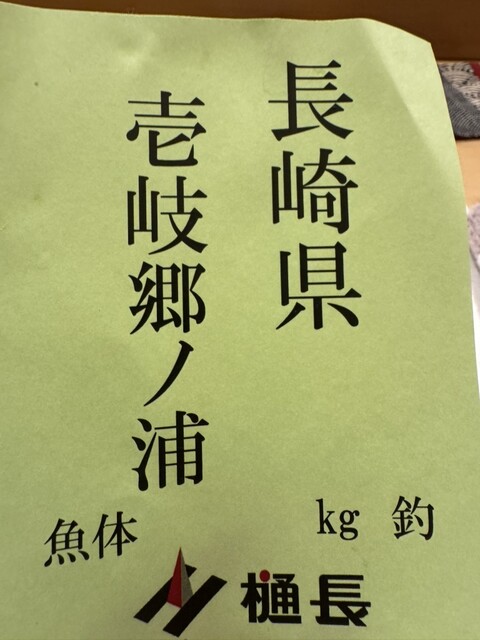 長崎県
壱岐郷ノ浦
魚体 kg 釣
樋長